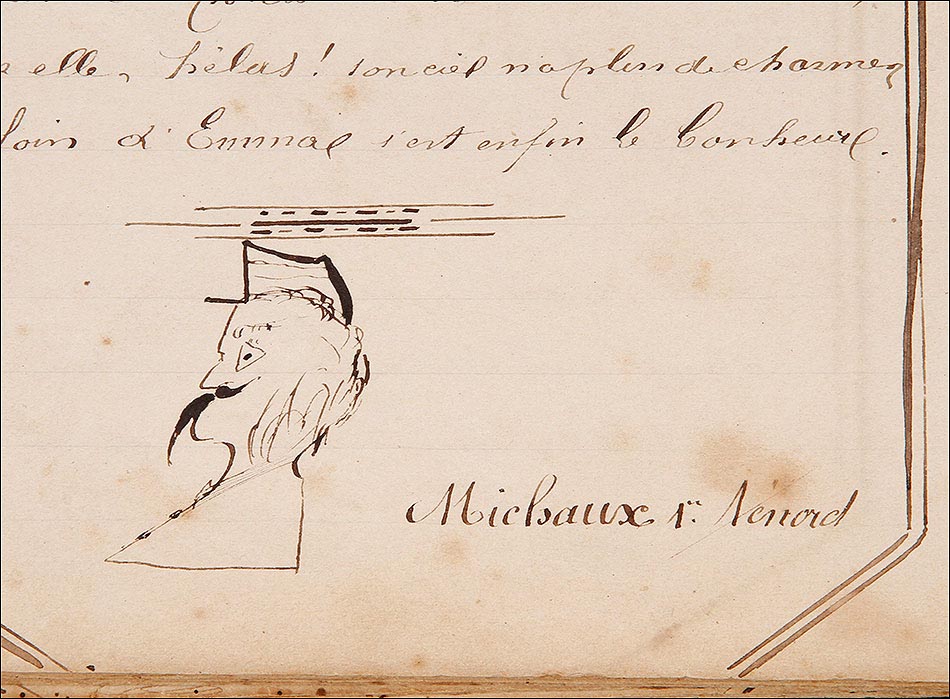 elle, hélas! son ciel n'a plus de charmes
loin d'Emma c'est enfin le bonheur.
Michaux 1r. Ténord